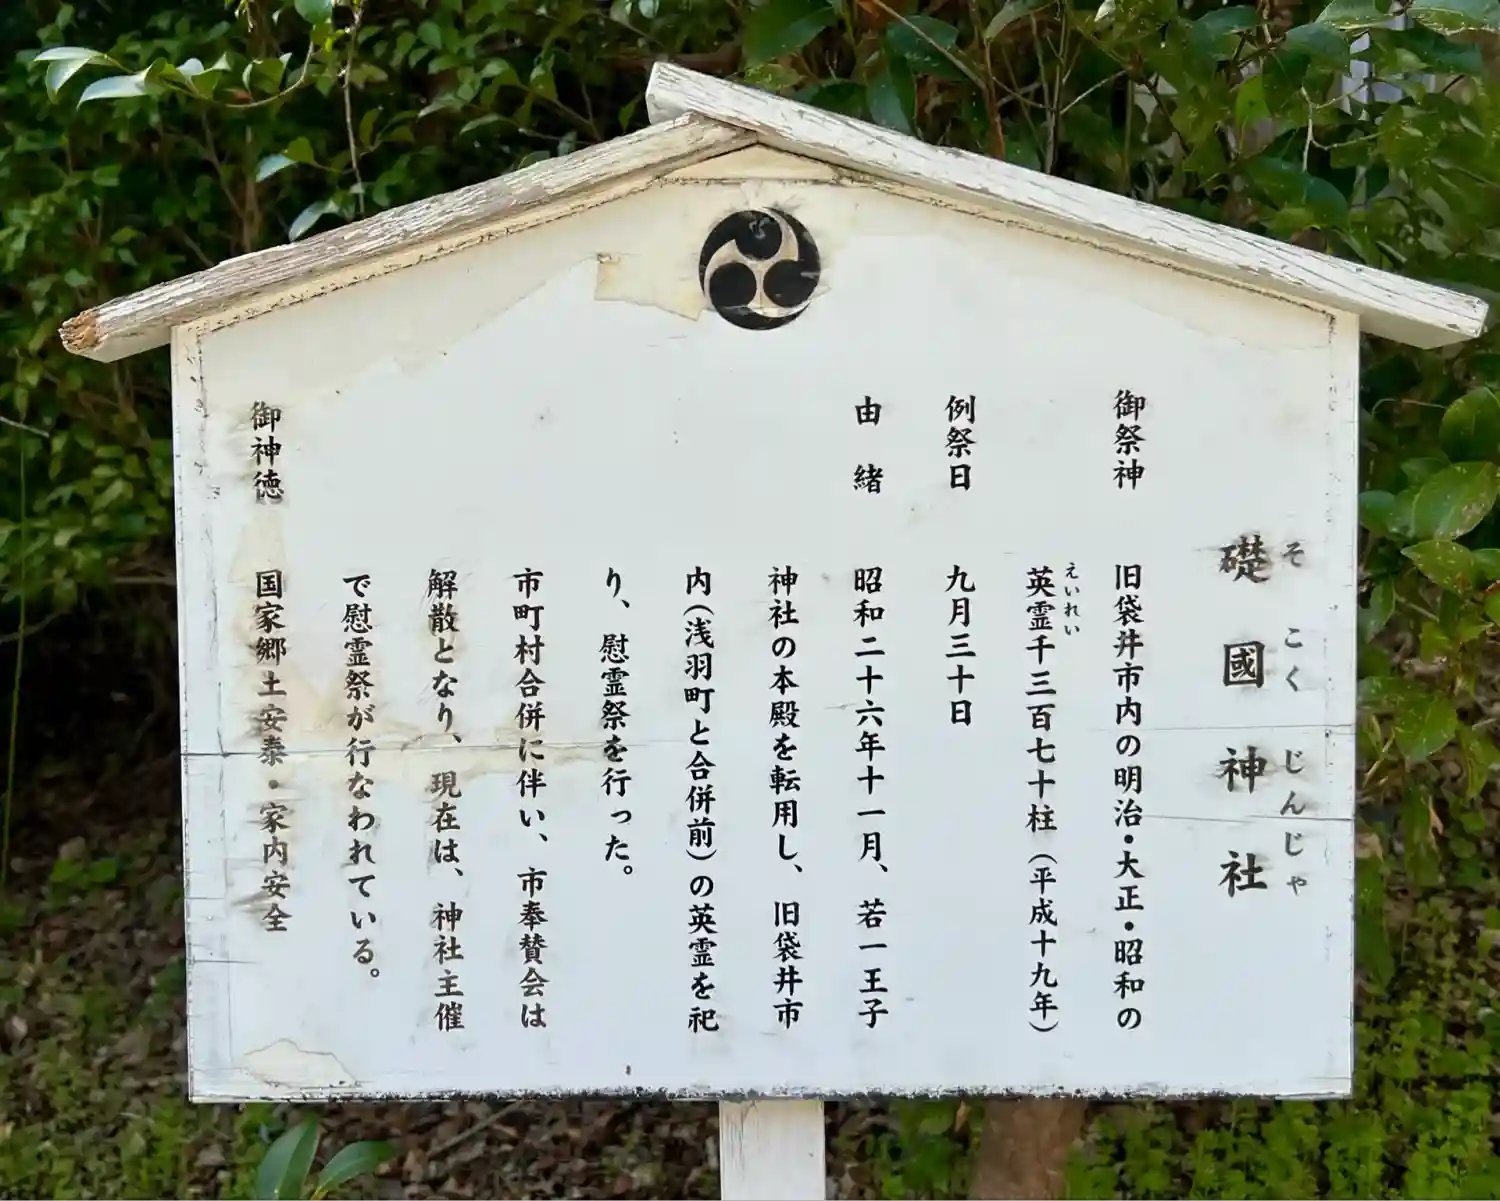 礎國神社
そこくじんじゃ
御祭神 旧袋井市内の明治・大正・昭和の
えいれい
英霊千三百七十柱（平成十九年）
例祭日 九月三十日
由緒 昭和二十六年十一月、若一王子
神社の本殿を転用し、旧袋井市
内（浅羽町と合併前）の英霊を祀
り、慰霊祭を行った。
市町村合併に伴い、市奉賛会は
解散となり、現在は、神社主催
で慰霊祭が行なわれている。
御神徳 国家郷土安泰・家内安全